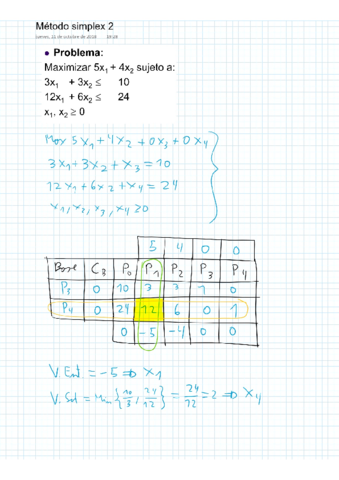 Método simplex 2
lunes, 22 de octubre de 2018
• Problema:
Maximizar 5x₁ + 4x₂ sujeto a:
3x₁ + 3x₂ ≤ 10
12x₁ + 6x₂ ≤ 24
x₁, x₂ ≥ 0
Max 5x₁ + 4x₂ + 0x₃ + 0x₄
3x₁ + 3x₂ + x₃ = 10
12x₁ + 6x₂ + x₄ = 24
x₁, x₂, x₃, x₄ ≥ 0
5 4 0 0
Base C_B P₀ P₁ P₂ P₃ P₄
P₃ 0 10 3 3 1 0
P₄ 0 24 12 6 0 1
0 -5 -4 0 0
V. Ent = -5 ⇒ x₁
V. Sal = Min {10/3, 24/12} = 24/12 = 2 ⇒ x₄